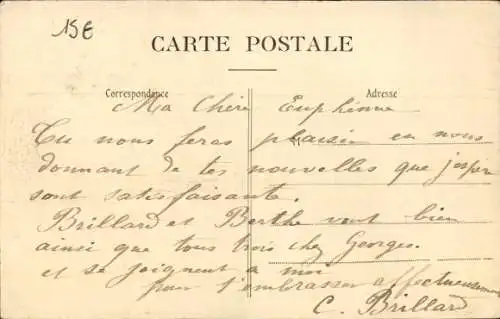 15€
CARTE POSTALE
Correspondance
Adresse
Ma Chère Euphémie
Tu nous feras plaisir en nous
donnant de tes nouvelles que j'esper
sont satisfaisante.
Brillard et Berthe vont bien
ainsi que tous trois chez Georges.
et se joignent a moi
pour t'embrasser affectueusement
C. Brillard